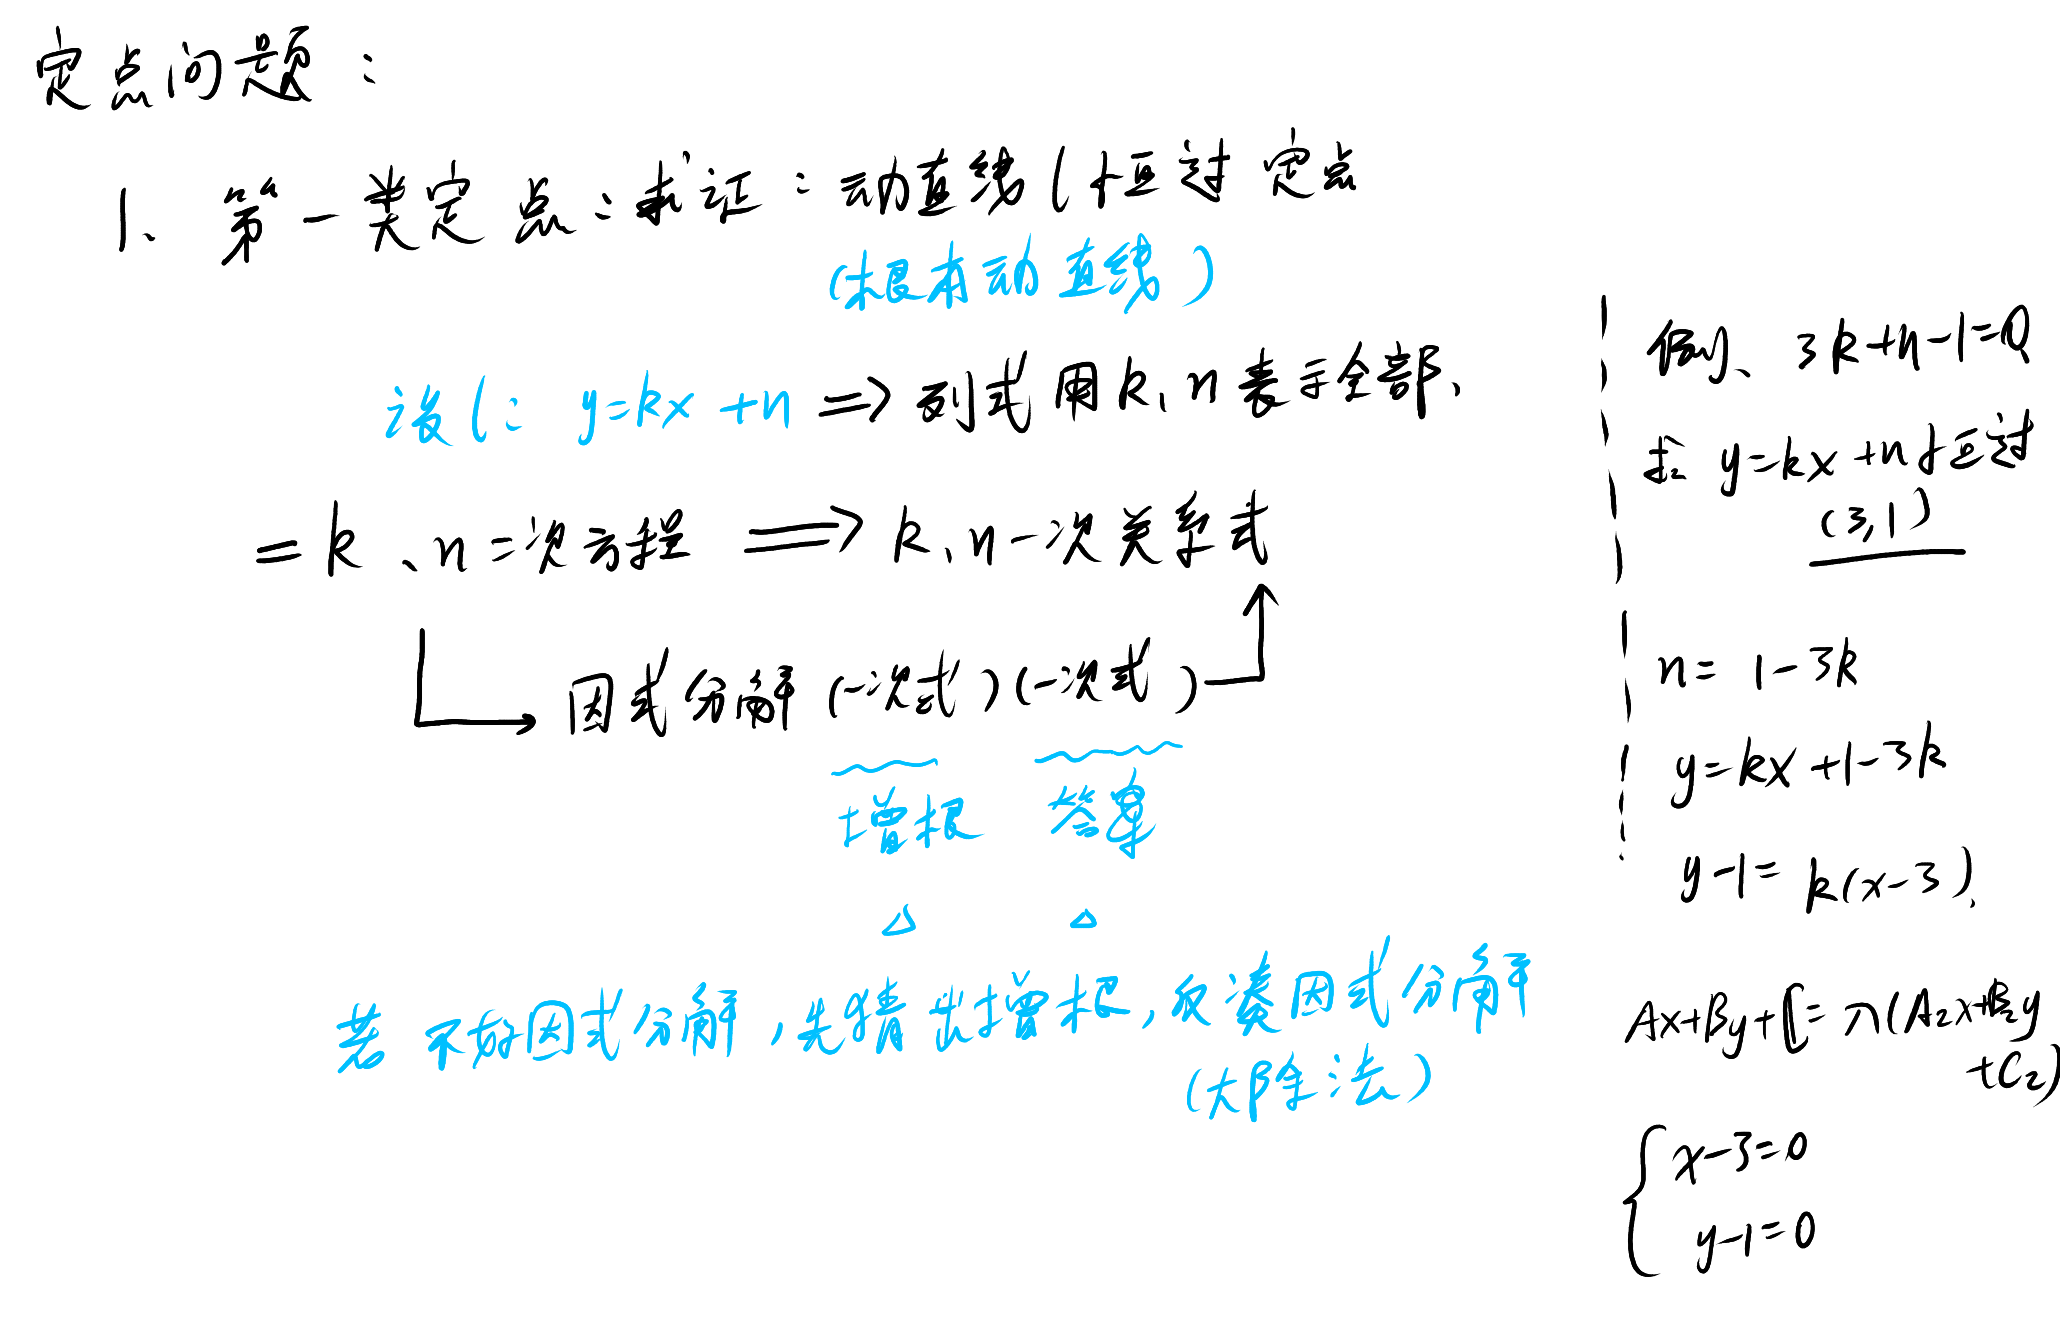 定点问题：
1、第一类定点：求证：动直线l恒过定点
（根本动直线）
设l：y=kx+n => 列式用k、n表示全部、
= k、n二次方程 => k、n一次关系式
因式分解（一次式）（一次式）
增根 答案
△ △
若不好因式分解，先猜出增根，反凑因式分解
（大除法）
例、3k+n-1=0
求 y=kx+n恒过
(3,1)
n= 1-3k
y=kx+1-3k
y-1= k(x-3).
Ax+By+C=λ(A₂x+B₂y
+C₂)
x-3=0
y-1=0